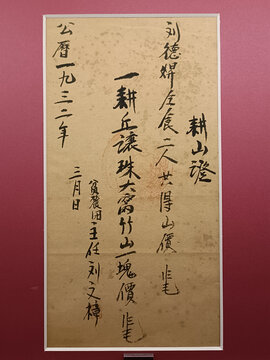 耕山證
刘德㷼仝食二人共得山價
一耕丘讓珠大窩竹山一塊價
貧農团主任刘文樟
三月日
公曆一九三二年